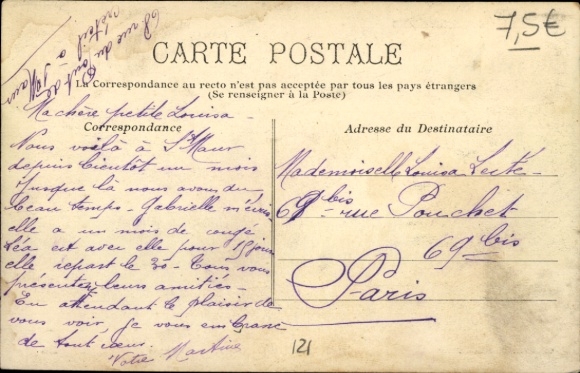 68 rue du Pont de
Créteil à St Maur
7,5€
CARTE POSTALE
La Correspondance au recto n'est pas acceptée par tous les pays étrangers
(Se renseigner à la Poste)
Correspondance
Ma chère petite Louisa -
Nous voilà à St Maur
depuis bientôt un mois
Jusque là nous avons du
beau temps - Gabrielle m'écris
elle a un mois de congé
Léa est avec elle pour 15 jours
elle repart le 30 - Tous vous
présentez leurs amitiés -
En attendant le plaisir de
vous voir, je vous embrasse
de tout cœur.
Votre Martine
Adresse du Destinataire
Mademoiselle Louisa
69 bis rue Pouchet
69 bis
Paris
121